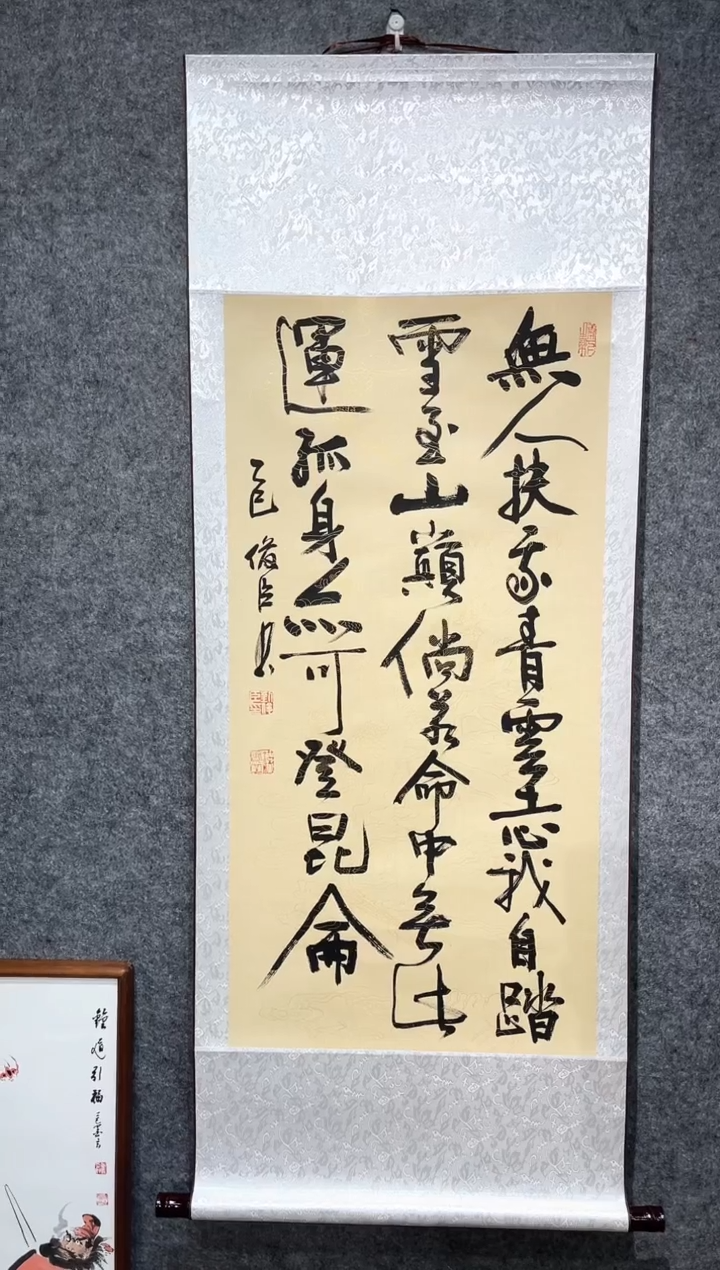 無人扶我青雲志我自踏
雪至山巔倘若命中无此
運孤身亦可登昆侖
乙巳 俊臣书
鐘馗引福